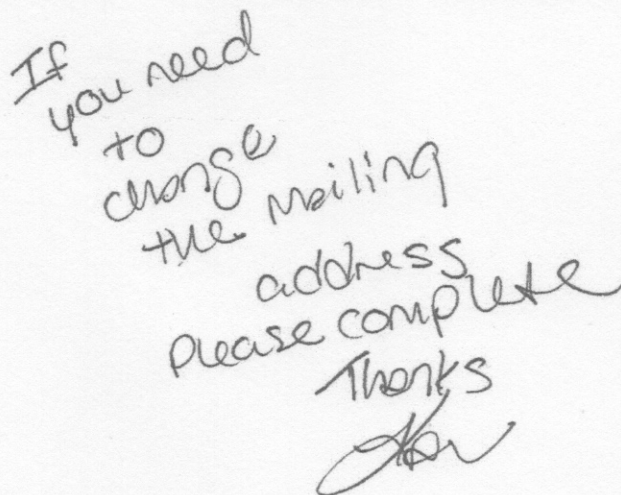 If
you need
to
change
the mailing
address
Please complete
Thanks